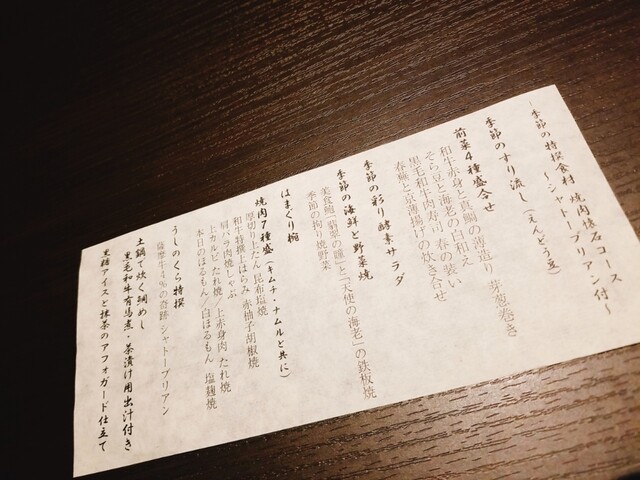 季節の特撰食材 焼肉懐石コース
～シャトーブリアン付～
季節のすり流し（えんどう豆）
前菜4種盛合せ
和牛赤身と真鯛の薄造り 芽葱巻き
そら豆と海老の白和え
黒毛和牛肉寿司 春の装い
春蕪と京薄揚げの炊き合せ
季節の彩り酵素サラダ
季節の海鮮と野菜焼
美食鮑「翡翠の瞳」と「天使の海老」の鉄板焼
季節の拘り焼野菜
はまぐり椀
焼肉7種盛（キムチ・ナムルと共に）
厚切り上たん 昆布塩焼
和牛特撰上はらみ 赤柚子胡椒焼
肩バラ肉焼しゃぶ
上カルビ たれ焼／上赤身肉 たれ焼
本日のほるもん／白ほるもん 塩麹焼
うしのくら特撰
薩摩牛4％の奇跡 シャトーブリアン
土鍋で炊く鯛めし
黒毛和牛有馬煮・茶漬け用出汁付き
黒糖アイスと抹茶のアフォガード仕立て